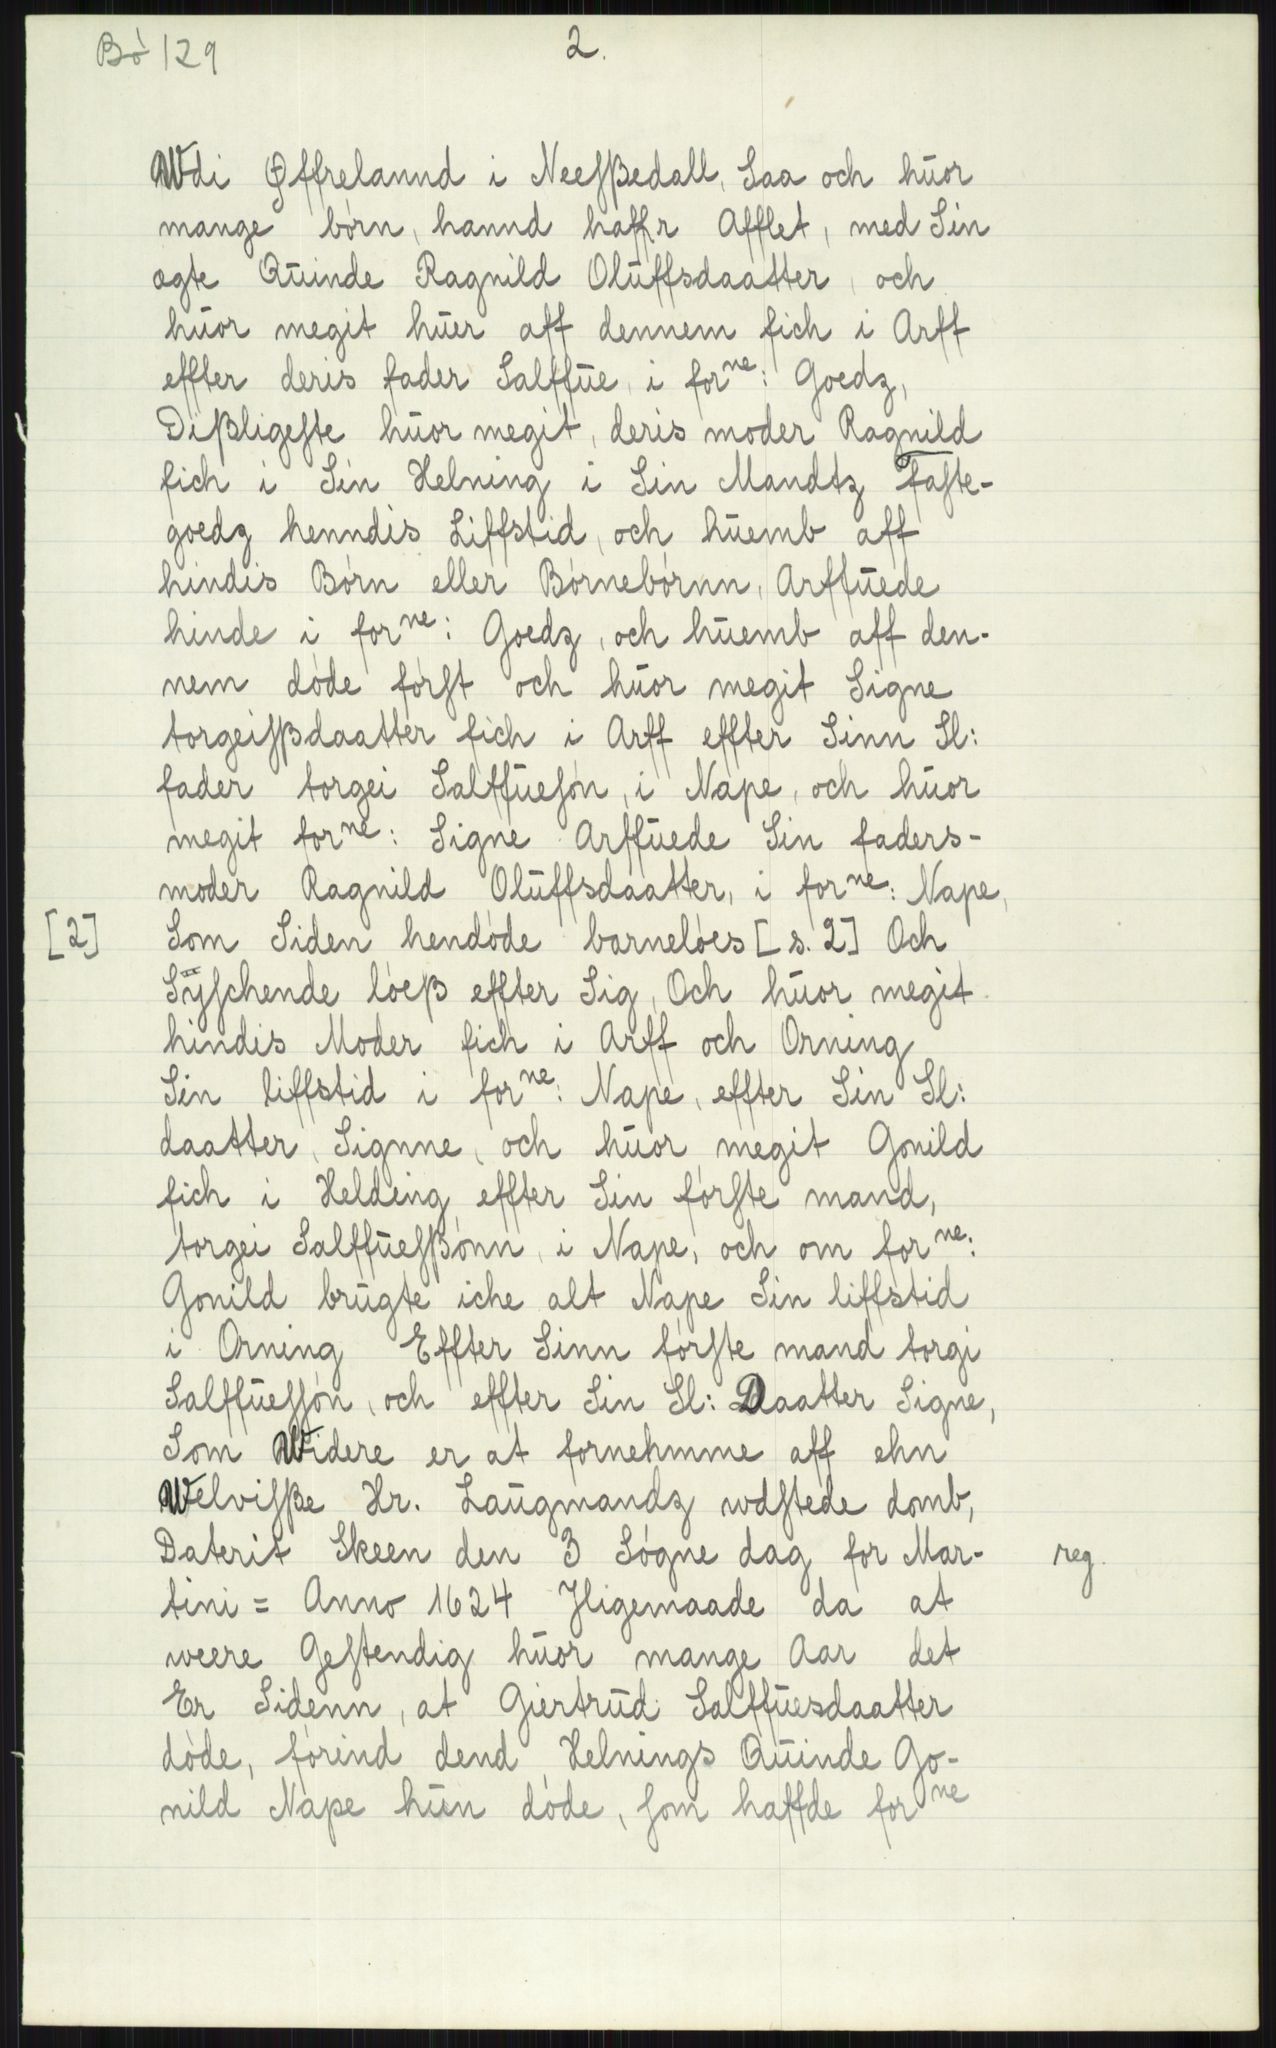 Bó 129
2.
Wdi Øffrelannd i Neesßedall, Saa och huor
mange børn, hannd haffr Afflet, med Sin
ægte Quinde Ragnild Oluffsdaatter, och
huor megit huer aff dennem fich i Arff
effter deris fader Salffue, i forne: Goedz,
Dißligeste huor megit, deris moder Ragnild
fich i Sin Helning i Sin Mandtz Faste-
goedz henndis Liffstid, och huemb aff
hindis Børn eller Børnebørnn, Arffuede
hinde i forne: Goedz, och huemb aff den-
nem døde først och huor megit Signe
torgeisßdaatter fich i Arff effter Sinn Sl:
fader torgei Salffuesøn, i Nape, och huor
megit forne: Signe Arffuede Sin faders-
moder Ragnild Oluffsdaatter, i forne: Nape,
[2] Som Siden hendøde barneløes [s. 2] Och
Sÿschende løeß effter Sig, Och huor megit
hindis Moder fich i Arff och Orning
Sin liffstid i forne: Nape, effter Sin Sl:
daatter, Signne, och huor megit Gonild
fich i Helding effter Sin første mand,
torgei Salffuesßønn, i Nape, och om forne:
Gonild brugte iche alt Nape Sin liffstid
i Orning Effter Sinn første mand torgi
Salffuessøn, och effter Sin Sl: Daatter Signe,
Som Widere er at fornehmme aff ehn
Welvisße Hr. Laugmandz wdstede domb,
Daterit Skeen den 3 Søgne dag for Mar- reg.
tini = Anno 1624 Jligemaade da at
weere Gestendig huor mange Aar det
Er Sidenn, at Giertrud Salffuesdaatter
døde, førind dend Helnings Quinde Go-
nild Nape hun døde, som haffde forne